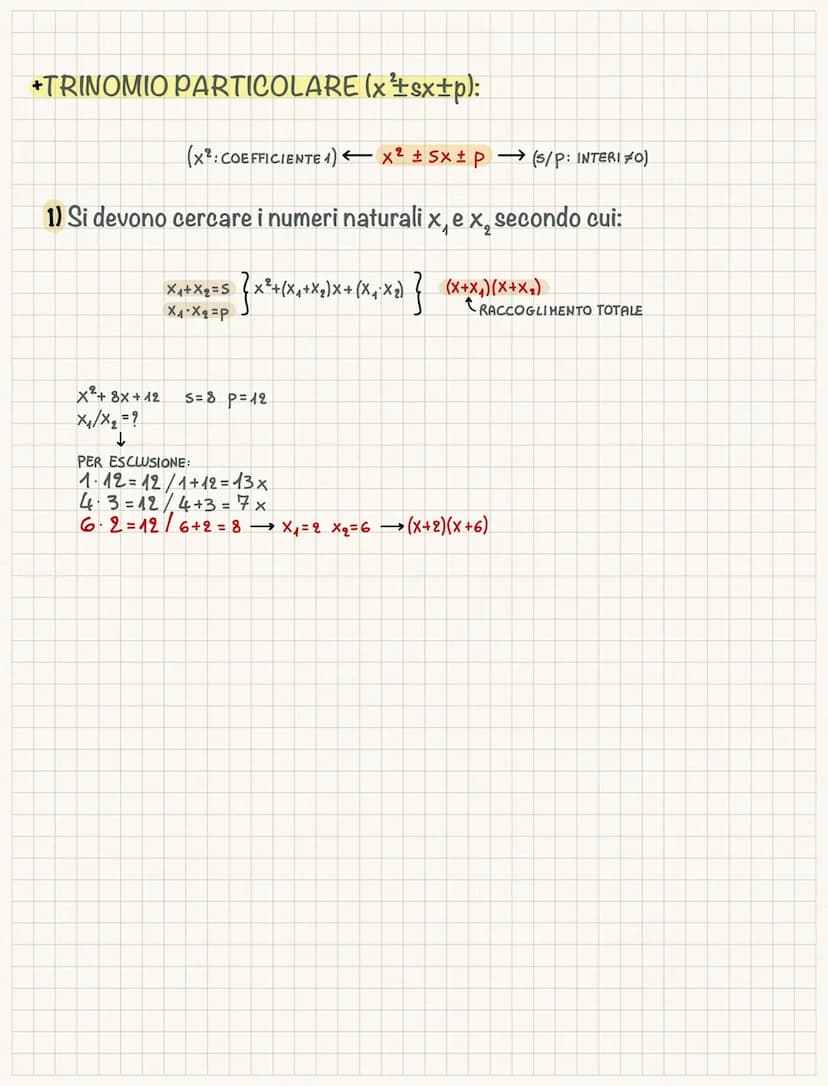 +TRINOMIO PARTICOLARE (x²±sx±p):
(x²: COEFFICIENTE 1) ← x² ± sx ± p → (s/p: INTERI ≠0)
1) Si devono cercare i numeri naturali x₁ e x₂ secondo cui:
x₁+x₂=s } x²+(x₁+x₂)x+(x₁·x₂) } (x+x₁)(x+x₂)
x₁·x₂=p
RACCOGLIMENTO TOTALE
x²+8x+12 s=8 p=12
x₁/x₂=?
↓
PER ESCLUSIONE:
1·12=12/1+12=13x
4·3=12/4+3=7x
6·2=12/6+2=8 → x₁=2 x₂=6 → (x+2)(x+6)